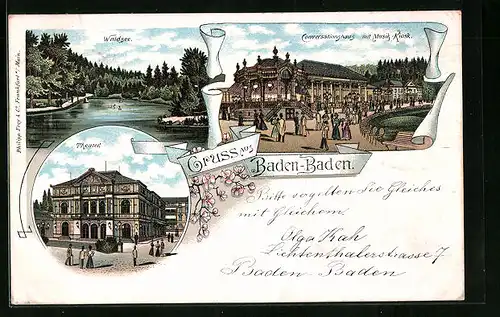 Waldsee.
Conversationshaus mit Musik-Kiosk.
Philipp Frey & Co., Frankfurt a/Main.
Theater
Gruss aus
Baden-Baden.
Bitte vergelten Sie Gleiches
mit Gleichem.
Olga Kah
Lichtenthalerstrasse 7
Baden-Baden